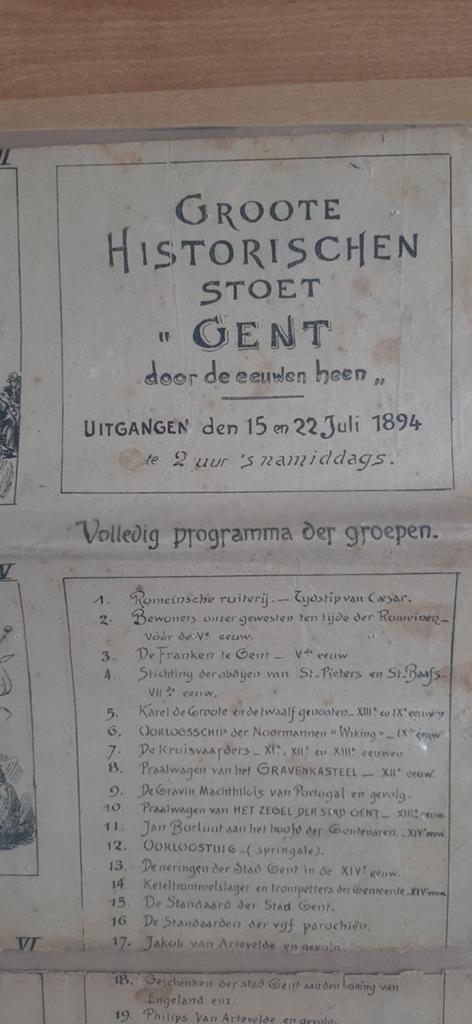 II
GROOTE
HISTORISCHEN
STOET
„ GENT
door de eeuwen heen „
UITGANGEN den 15 en 22 Juli 1894
te 2 uur 's namiddags.
Volledig programma der groepen.
V
1. Romeinsche ruiterij. — Tijdstip van Cæsar.
2. Bewoners onzer gewesten ten tijde der Romeinen_
vóór de Ve eeuw.
3. De Franken te Gent _ Vde eeuw
4. Stichting der abdijen van St-Pieters en St-Baafs-
VIIde eeuw.
5. Karel de Groote en de twaalf genooten_ en IXe eeuwen
6. OORLOGSSCHIP der Noormannen "Wiking" _ IXe eeuw
7. De Kruisvaarders _ XIe, XIIe en XIIIe eeuwen.
8. Praalwagen van het GRAVENKASTEEL — XIIe eeuw.
9. De Gravin Machthildis van Portugal en gevolg.
10. Praalwagen van HET ZEGEL DER STAD GENT _ XIIIe eeuw.
11. Jan Borluut aan het hoofd der Gentenaren. _XIVe eeuw
12. OORLOGSTUIG _ (springale).
13. De neringen der Stad Gent in de XIVe eeuw.
14. Keteltrommelslager en trompetters der Gemeente_XIVe eeuw
15. De Standaard der Stad Gent.
16 De Standaarden der vijf parochiën.
17. Jakob van Artevelde en gevolg.
VI
18. Geschenken der stad Gent aan den koning van
Engeland enz.
19. Philips Van Artevelde en gevolg.